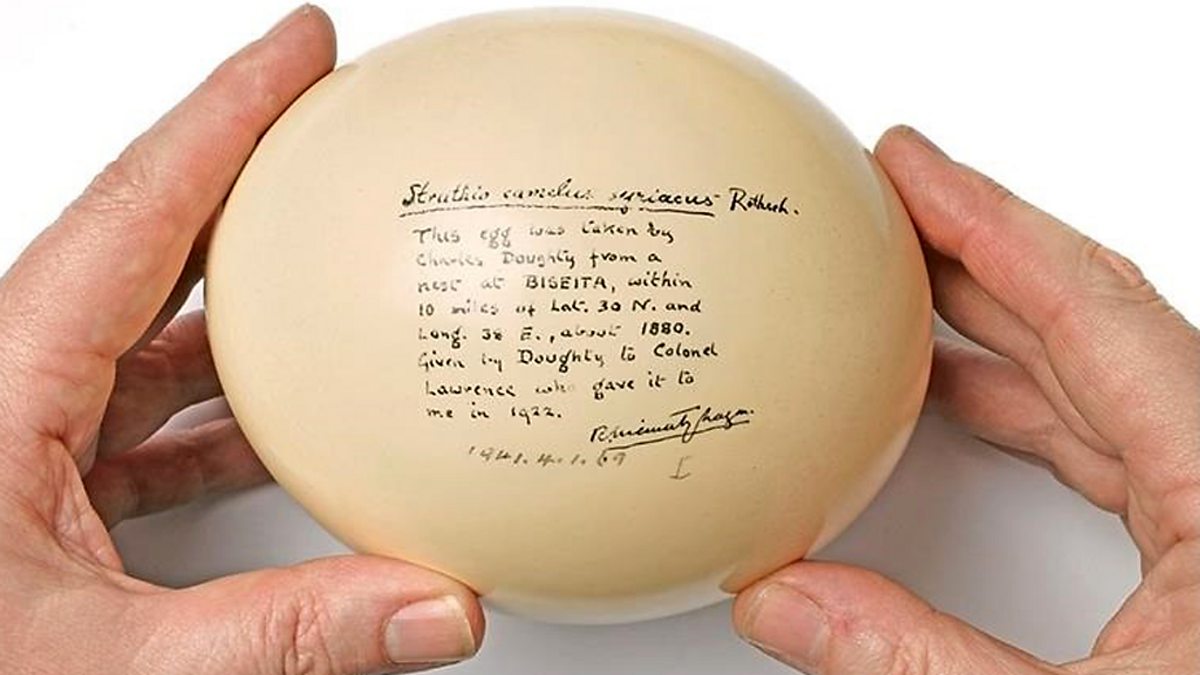 Struthio camelus syriacus Rothsch.
This egg was taken by
Charles Doughty from a
nest at BISEITA, within
10 miles of Lat. 30 N. and
Long. 38 E., about 1880.
Given by Doughty to Colonel
Lawrence who gave it to
me in 1922.
R. Meinertzhagen.
1941.4.1.69 I